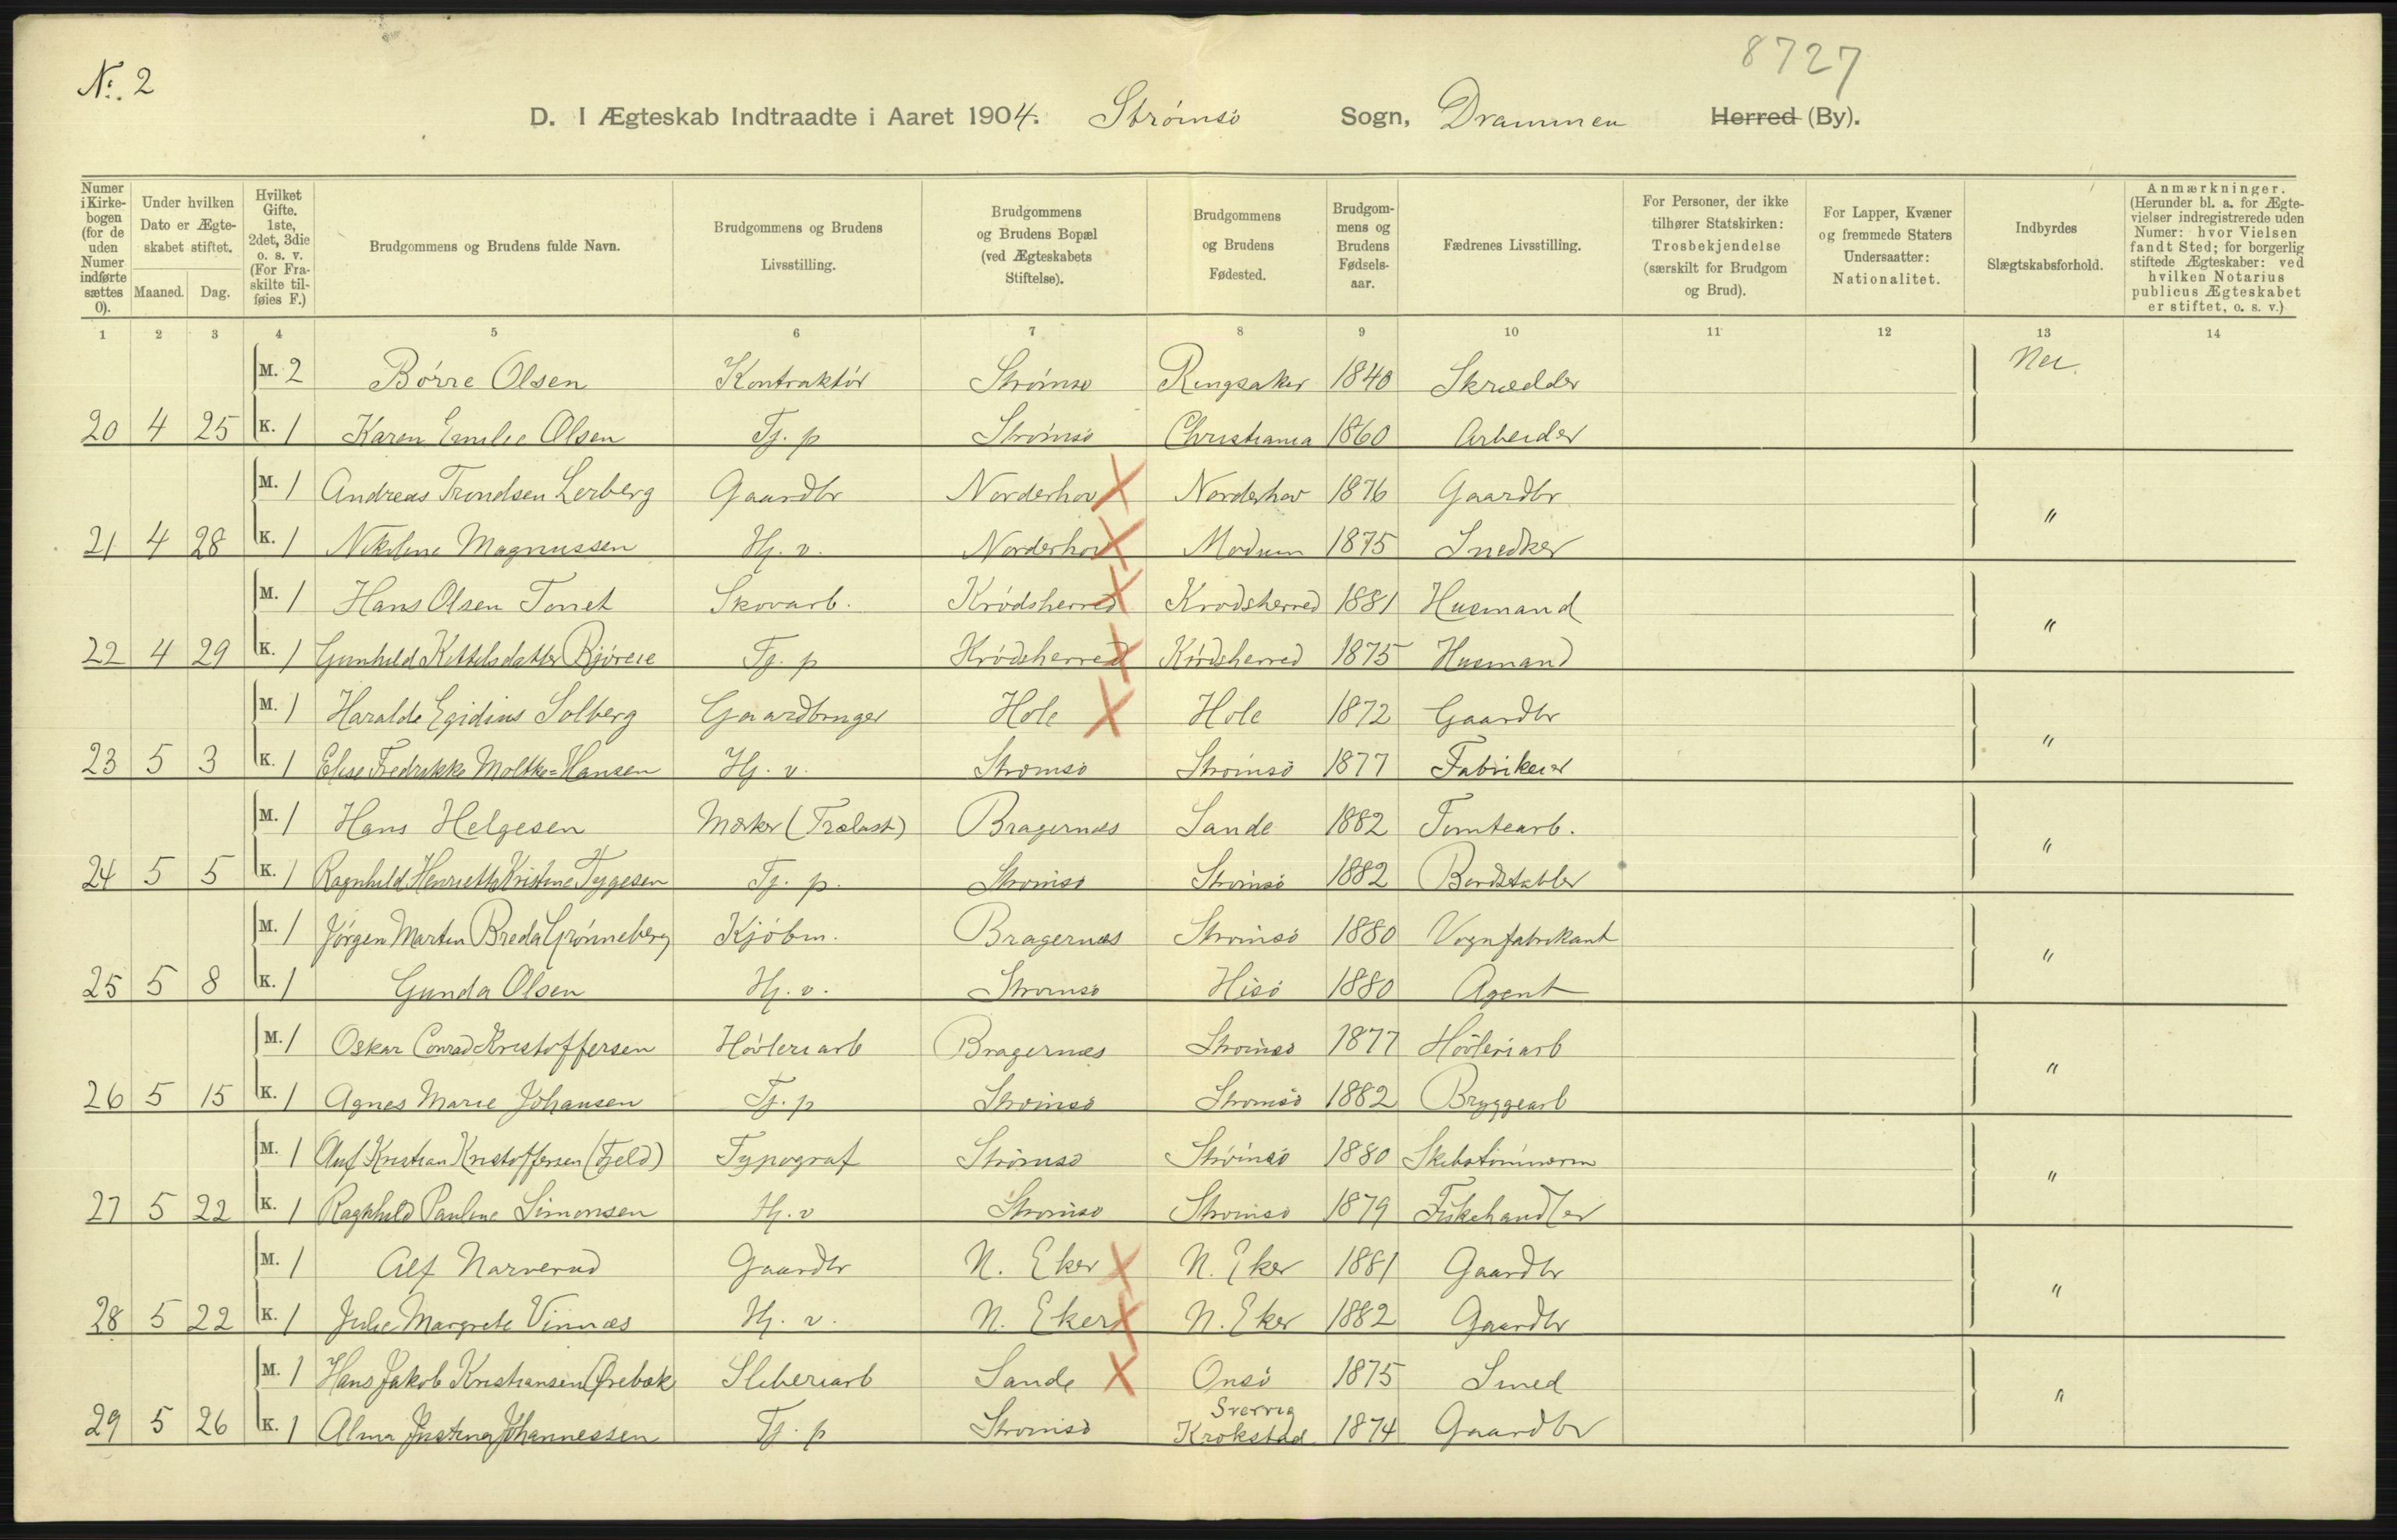 8727
No. 2
D. I Ægteskab Indtraadte i Aaret 1904. Strømsö Sogn, Drammen Herred (By).
Numer i Kirkebogen (for de uden Numer indførte sættes 0).
Under hvilken Dato er Ægteskabet stiftet.
Maaned. Dag.
Hvilket Gifte. 1ste, 2det, 3die o. s. v. (For Fraskilte tilføies F.)
Brudgommens og Brudens fulde Navn.
Brudgommens og Brudens Livsstilling.
Brudgommens og Brudens Bopæl (ved Ægteskabets Stiftelse).
Brudgommens og Brudens Fødested.
Brudgommens og Brudens Fødselsaar.
Fædrenes Livsstilling.
For Personer, der ikke tilhører Statskirken: Trosbekjendelse (særskilt for Brudgom og Brud).
For Lapper, Kvæner og fremmede Staters Undersaatter: Nationalitet.
Indbyrdes Slægtskabsforhold.
Anmærkninger. (Herunder bl. a. for Ægtevielser indregistrerede uden Numer: hvor Vielsen fandt Sted; for borgerlig stiftede Ægteskaber: ved hvilken Notarius publicus Ægteskabet er stiftet, o. s. v.)
1 2 3 4 5 6 7 8 9 10 11 12 13 14
M. 2 Börre Olsen Kontraktör Strömsö Ringsaker 1840 Skrædder Nei.
20 4 25 K. 1 Karen Emilie Olsen Tj. p Strömsö Christiania 1860 Arbeider
M. 1 Andreas Trondsen Lerberg Gaardbr Norderhov X Norderhov 1876 Gaardbr
21 4 28 K. 1 Nikoline Magnussen Hj. v. Norderhov X Modum 1875 Snedker "
M. 1 Hans Olsen Skovarb. Krödsherred X Krodsherred 1881 Husmand
22 4 29 K. 1 Gunhild Kittelsdatter Tj. p Krödsherred X Krödsherred 1875 Husmand "
M. 1 Haralde Egidius Solberg Gaardbruger Hole X Hole 1872 Gaardbr
23 5 3 K. 1 Elise Fredrikke Moltke=Hansen Hj. v. Strömsö Strömsö 1877 Fabrikeier "
M. 1 Hans Helgesen Mærker (Trælast) Bragernæs Sande 1882 Tomtearb.
24 5 5 K. 1 Ragnhild Henriette Kristine Tygesen Tj. p. Strömsö Strömsö 1882 Bordstabler "
M. 1 Jörgen Martin Breda Grönneberg Kjöbm. Bragernæs Strömsö 1880 Vognfabrikant
25 5 8 K. 1 Gunda Olsen Hj. v. Strömsö Hisö 1880 Agent "
M. 1 Oskar Conrad Kristoffersen Hövleriarb Bragernæs Strömsö 1877 Hövleriarb
26 5 15 K. 1 Agnes Marie Johansen Tj. p Strömsö Strömsö 1882 Bryggearb "
M. 1 Oluf Kristian Kristoffersen (Fjeld) Typograf Strömsö Strömsö 1880 Skibstömmerm
27 5 22 K. 1 Ragnhild Pauline Simonsen Hj. v Strömsö Strömsö 1879 Fiskehandler "
M. 1 Alf Narverud Gaardbr N. Eker X N. Eker 1881 Gaardbr
28 5 22 K. 1 Julie Margrete Vinnæs Hj. v. N. Eker X N. Eker 1882 Gaardbr "
M. 1 Hans Jakob Kristiansen Ørebæk Sliberiarb Sande X Onsö 1875 Smed
29 5 26 K. 1 Alma Justina Johannessen Tj. p Strömsö Sverrig Krokstad 1874 Gaardbr "